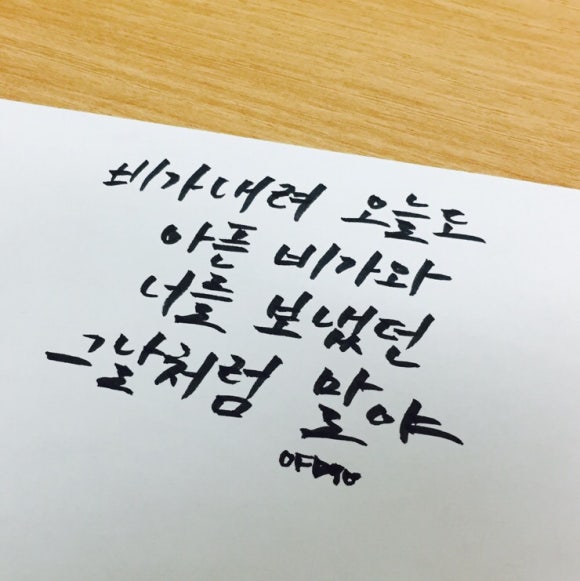 비가내려 오늘도
아픈 비가와
너를 보냈던
그날처럼 말야